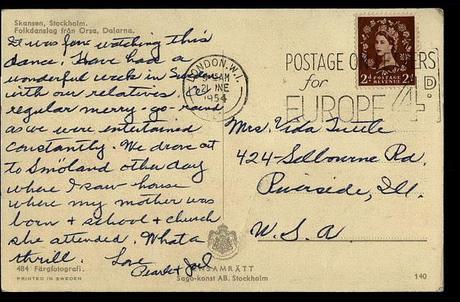 Skansen, Stockholm.
Folkdanslag från Orsa, Dalarna.
It was fun watching this
dance. Have had a
wonderful week in
with our relatives.
regular merry-go-round
as we were entertained
constantly. We drove at
to Smöland other day
where I saw house
where my mother was
born & school & church
she attended. What a
thrill. Love
Pearl & Joel
484 Färgfotografi.
PRINTED IN SWEDEN
ENSAMRÄTT
Sago-konst AB. Stockholm
LONDON. W.I.
AM
21 JNE
1954
POSTAGE ERS
for
EUROPE 4D.
POSTAGE
REVENUE
2D 2D
Mrs. Vida Tuttle
424-Selbourne Rd.
Riverside, Ill.
U.S.A
140